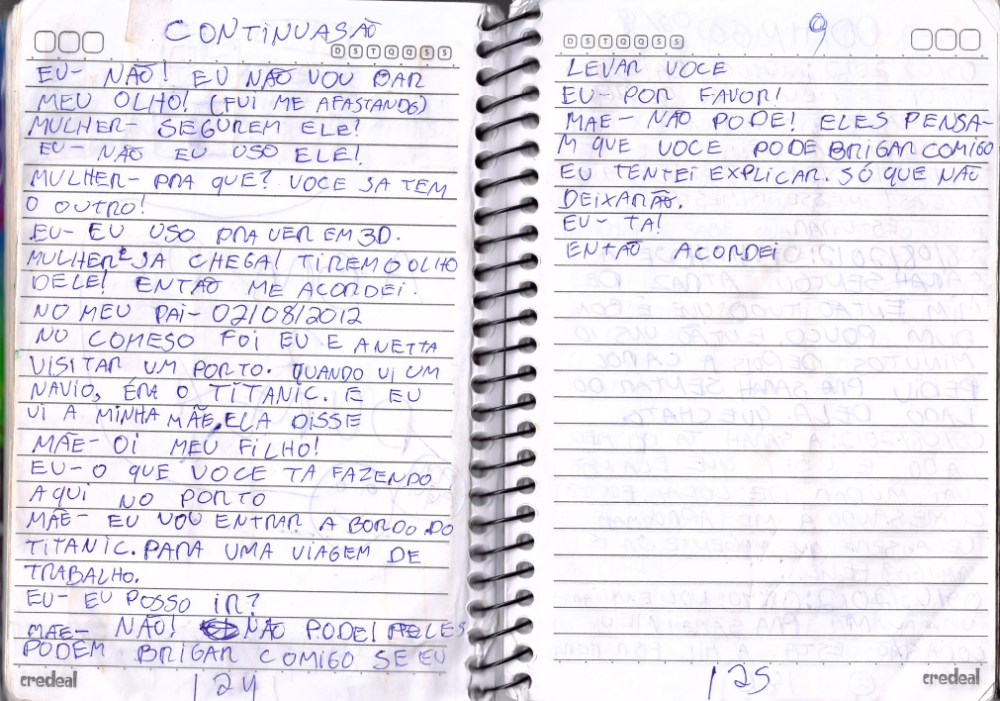 CONTINUASÃO
D S T Q Q S S
EU- NÃO! EU NÃO VOU DAR
MEU OLHO! (FUI ME AFASTANDO)
MULHER- SEGUREM ELE!
EU- NÃO EU USO ELE!
MULHER- PRA QUE? VOCE JA TEM
O OUTRO!
EU- EU USO PRA VER EM 3D.
MULHER- JA CHEGA! TIREM O OLHO
DELE! ENTÃO ME ACORDEI.
NO MEU PAI- 02/08/2012
NO COMESO FOI EU E A NETTA
VISITAR UM PORTO. QUANDO VI UM
NAVIO, ÉRA O TITANIC. E EU
VI A MINHA MÃE, ELA DISSE
MÃE- OI MEU FILHO!
EU- O QUE VOCE TA FAZENDO
AQUI NO PORTO
MÃE- EU VOU ENTRAR A BORDO DO
TITANIC. PARA UMA VIAGEM DE
TRABALHO.
EU- EU POSSO IR?
MÃE- NÃO! NÃO PODE! ELES
PODEM BRIGAR COMIGO SE EU
credeal
124
9
D S T Q Q S S
LEVAR VOCE
EU- POR FAVOR!
MAE- NÃO PODE! ELES PENSA-
M QUE VOCE PODE BRIGAR COMIGO
EU TENTEI EXPLICAR. SÓ QUE NÃO
DEIXARÃO.
EU- TA!
ENTÃO ACORDEI
125
credeal